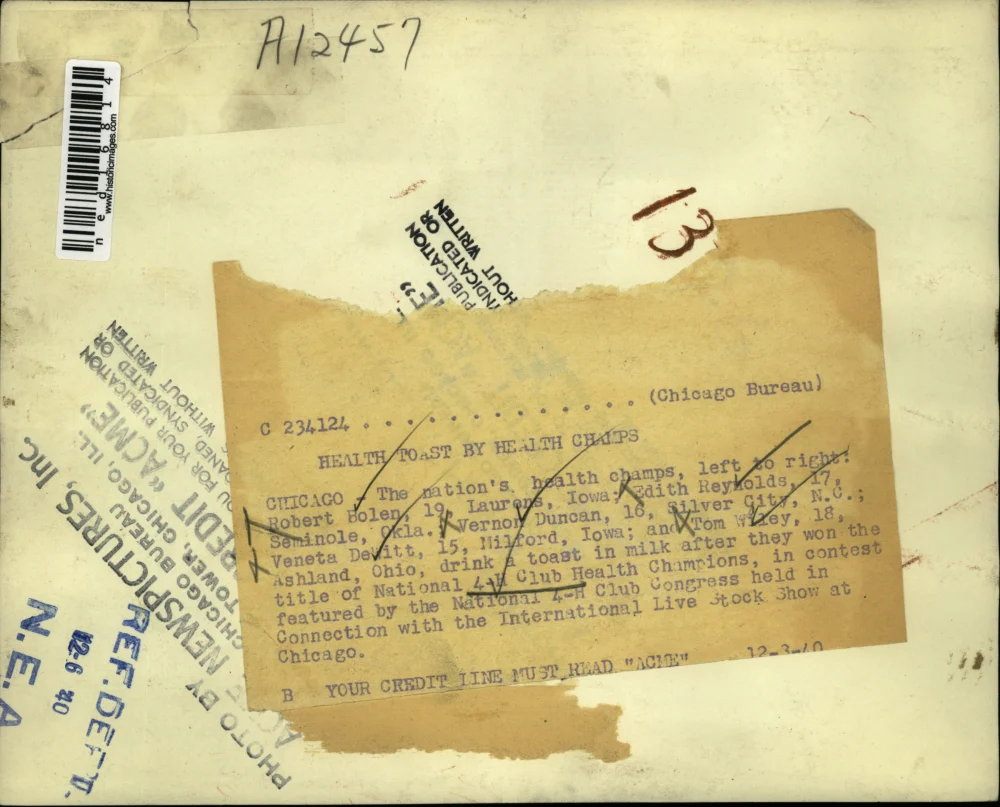 A12457
ned16814
www.historicimages.com
13
"ACME"
C 234124 . . . . . . . . . . . . . . (Chicago Bureau)
HEALTH TOAST BY HEALTH CHAMPS
CHICAGO - The nation's health champs, left to right:
Robert Bolen, 19, Laurens, Iowa; Edith Reynolds, 17,
Seminole, Okla.; Vernon Duncan, 16, Silver City, N.C.;
Veneta DeWitt, 15, Milford, Iowa; and Tom Wiley, 18,
Ashland, Ohio, drink a toast in milk after they won the
title of National 4-H Club Health Champions, in contest
featured by the National 4-H Club Congress held in
Connection with the International Live Stock Show at
Chicago.
B YOUR CREDIT LINE MUST READ "ACME" 12-3-40
PUBLICATION
SYNDICATED OR
WITHOUT WRITTEN
PHOTO BY NEWSPICTURES, Inc
CHICAGO BUREAU
TOWER, CHICAGO, ILL.
CREDIT "ACME"
FOR YOUR PUBLICATION
SYNDICATED OR
WITHOUT WRITTEN
REF. DEPT.
12-6 '40
N. E. A